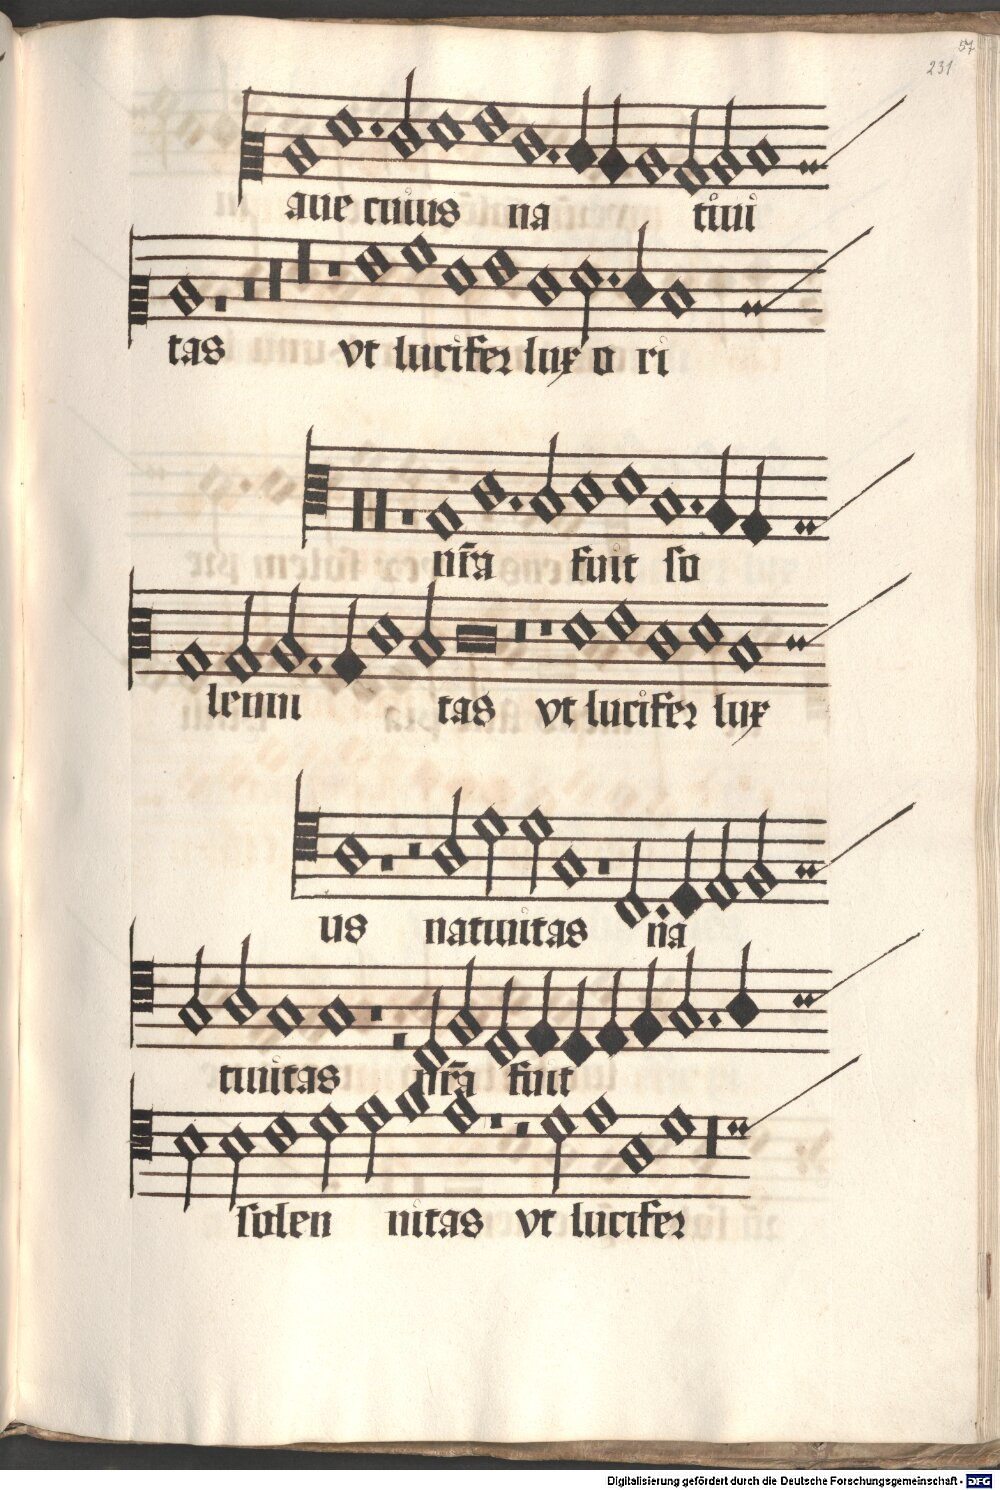 57
231
aue cuius na tiui
tas vt lucifer lux o ri
nr̄a fuit so
lemni tas vt lucifer lux
us natiuitas na
tiuitas nr̄a fuit
solen nitas vt lucifer
Digitalisierung gefördert durch die Deutsche Forschungsgemeinschaft - DFG